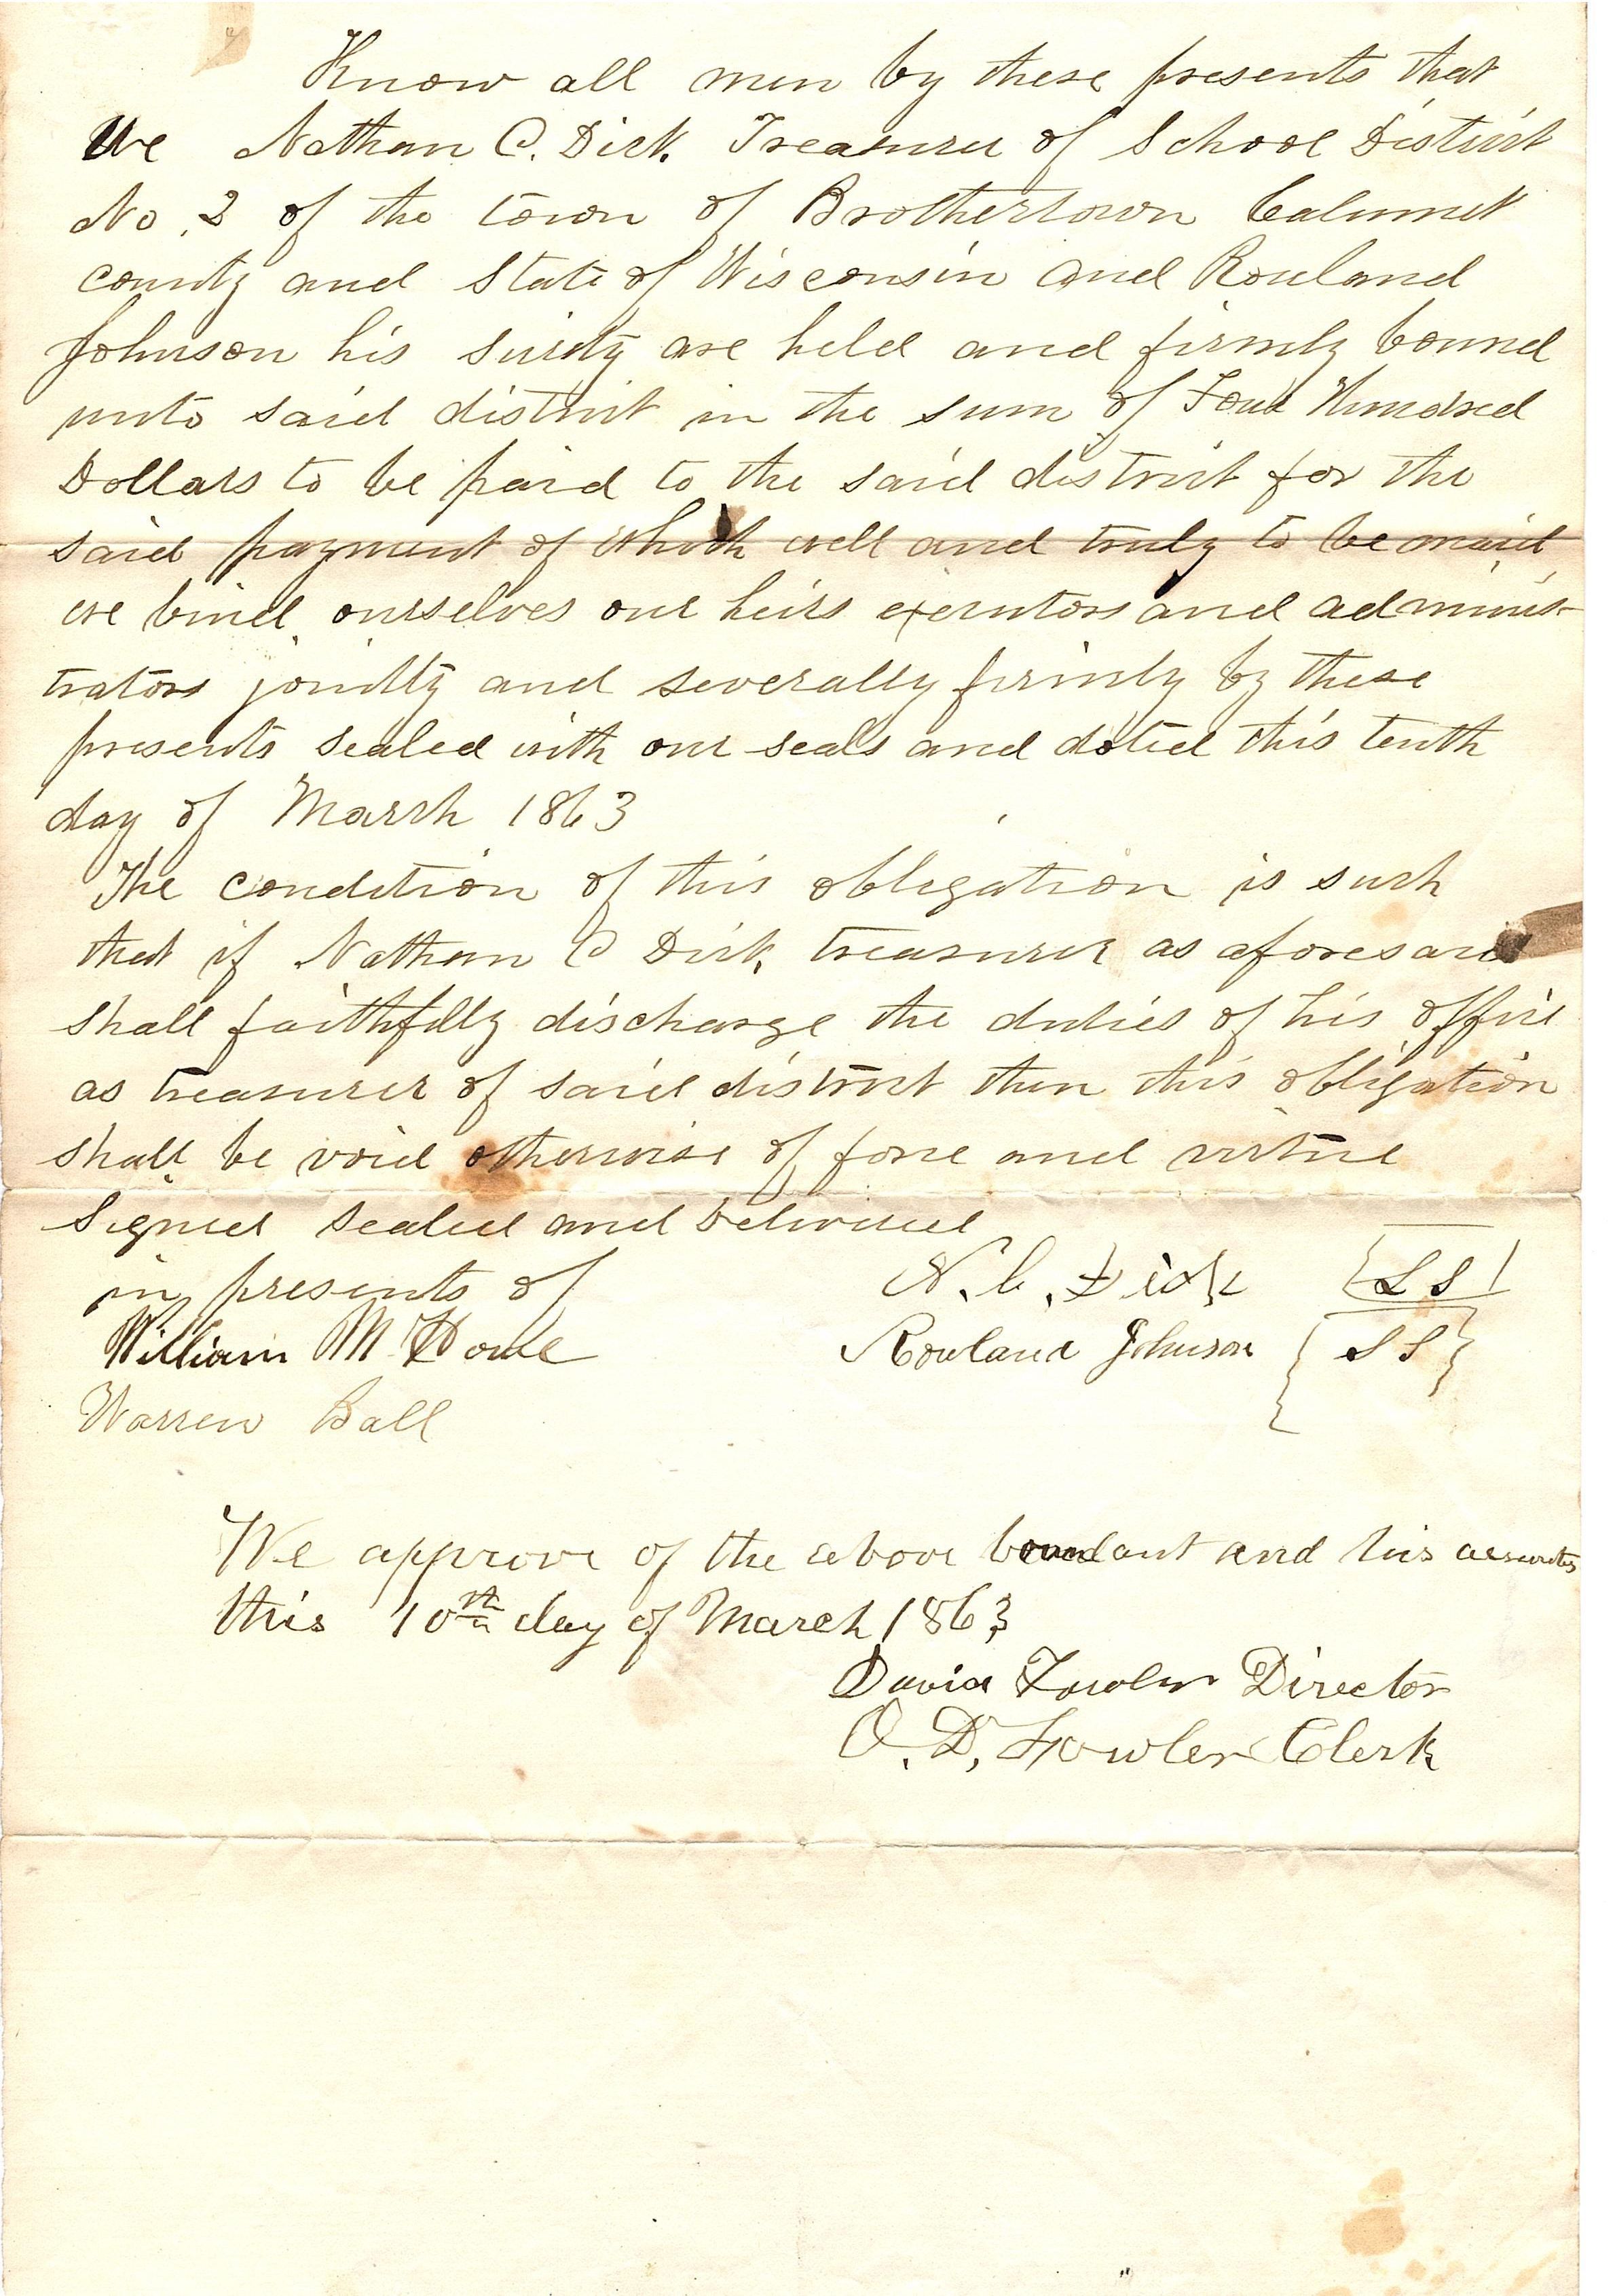 Know all men by these presents that
We Nathan C. Dick. Treasurer of School District
No. 2 of the town of Brothertown Calumet
county and State of Wisconsin and Rouland
Johnson his surety are held and firmly bound
unto said district in the sum of Four Hundred
Dollars to be paid to the said district for the
said payment of which well and truly to be maid
we bind ourselves our heirs executors and adminis-
trators jointly and severally firmly by these
presents sealed with our seals and dated this tenth
day of March 1863
The condition of this obligation is such
that if Nathan C Dick, treasurer as aforesaid
shall faithfully discharge the duties of his office
as treasurer of said district then this obligation
shall be void otherwise of force and virtue
Signed sealed and delivered
in presents of
N. C. Dick {L S}
William M Howe
Rouland Johnson {L S}
Warren Ball
We approve of the above and his
this 10th day of March 1863
David Fowler Director
O. D. Fowler Clerk